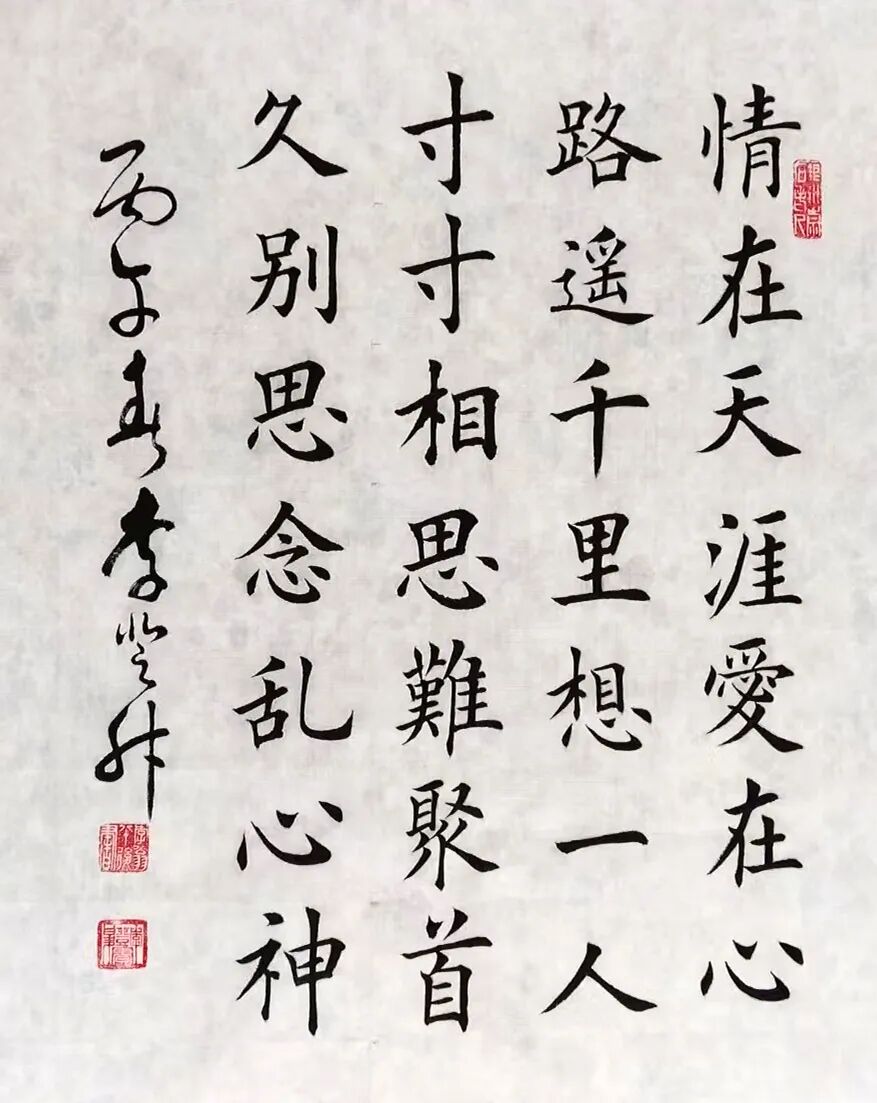 情在天涯愛在心
路遥千里想一人
寸寸相思難聚首
久别思念乱心神
丙午春李登舟